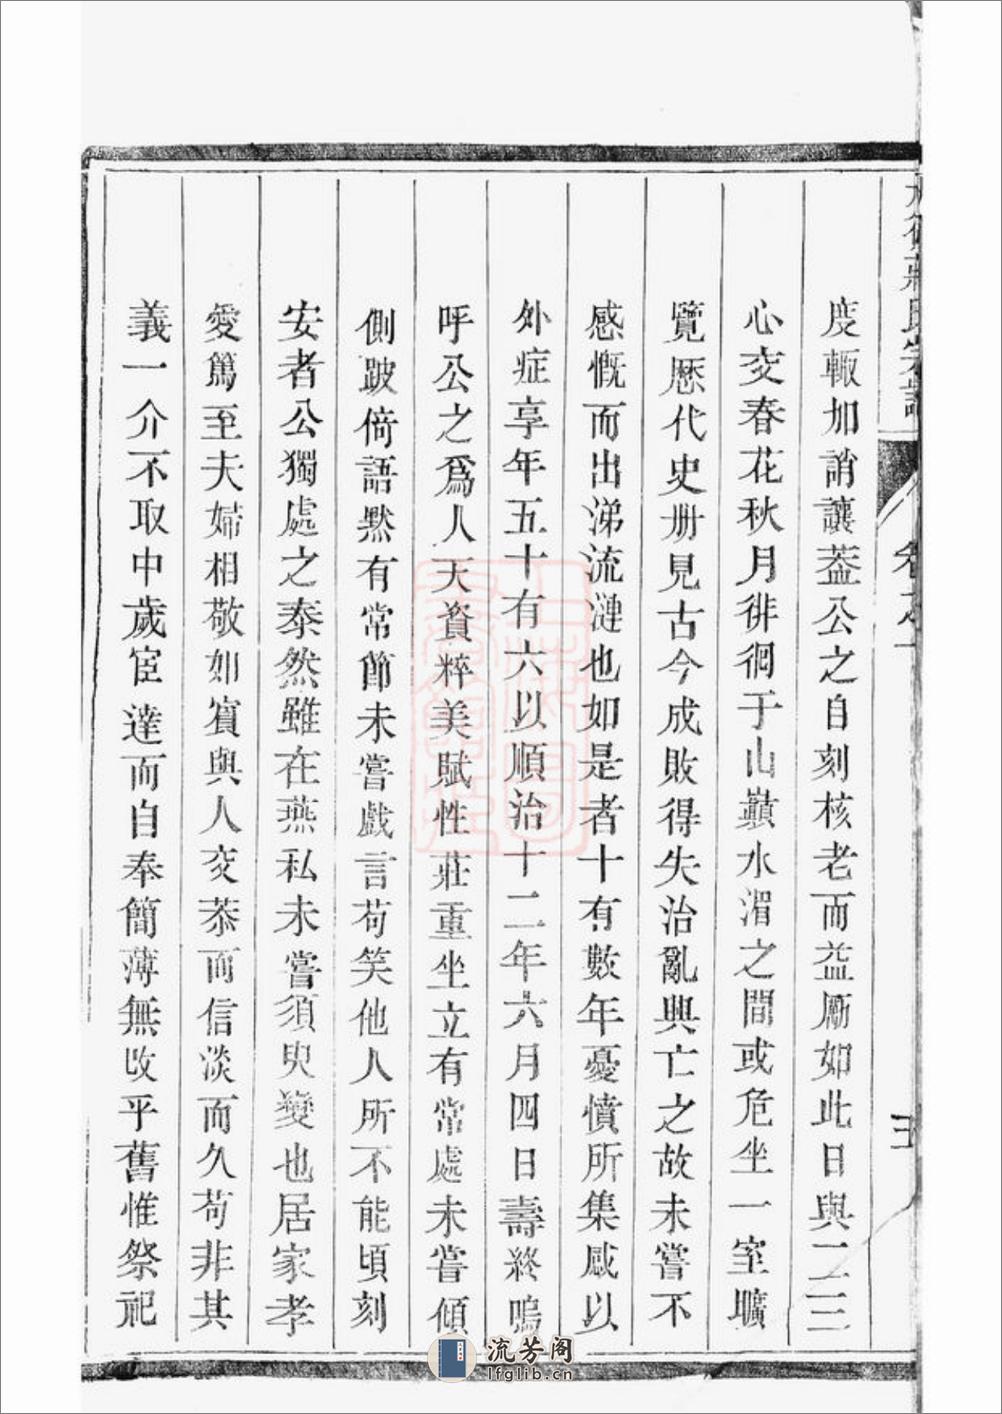 度輙加誚讓葢公之自刻核老而益厲如此日與二三
心交春花秋月徘徊于山巔水湄之間或危坐一室曠
覽歷代史册見古今成敗得失治亂興亡之故未嘗不
感慨而出涕流漣也如是者十有數年憂憤所集感以
外症享年五十有六以順治十二年六月四日壽終嗚
呼公之爲人天資粹美賦性莊重坐立有常處未嘗傾
側跛倚語黙有常節未嘗戲言苟笑他人所不能頃刻
安者公獨處之泰然雖在燕私未嘗須臾變也居家孝
愛篤至夫婦相敬如賓與人交恭而信淡而久苟非其
義一介不取中歲宦達而自奉簡薄無改乎舊惟祭祀
流芳阁
lfglib.cn